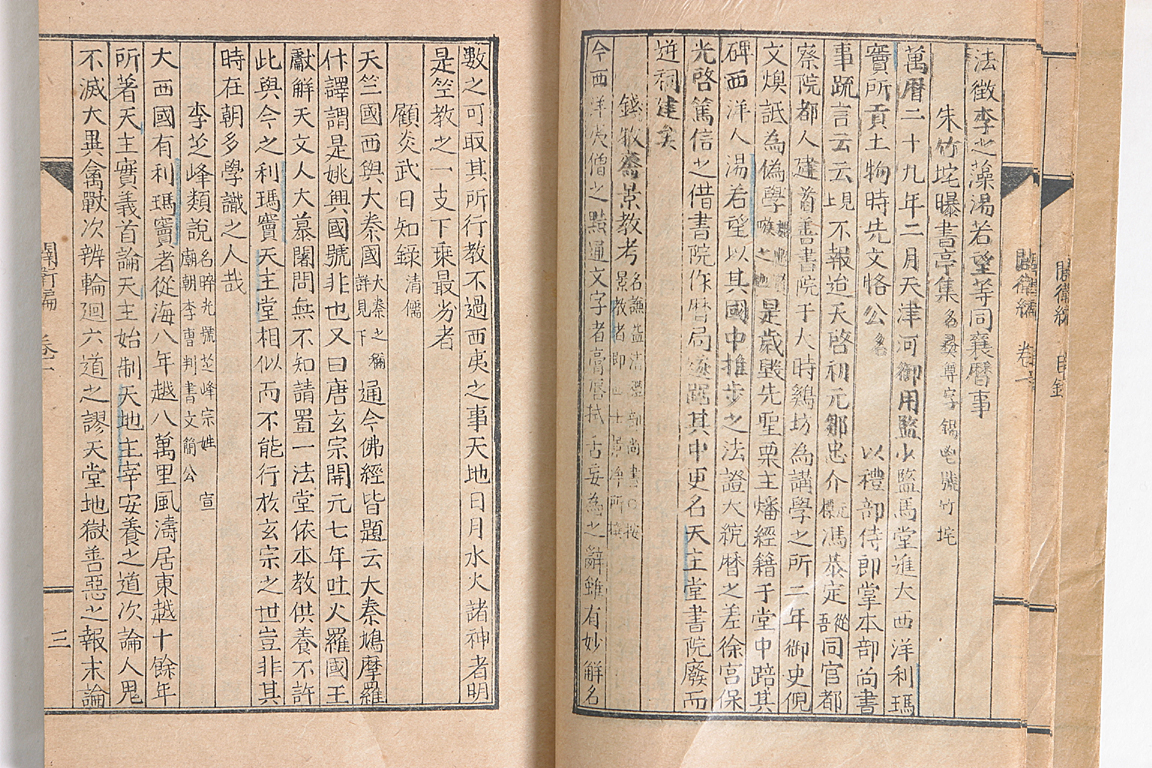 法徵李之藻湯若望等同襄曆事
朱竹垞曝書亭集 名彝尊字錫鬯號竹垞
萬曆二十九年二月天津河御用監少監馬堂進大西洋利瑪
竇所貢土物時先文恪公 以禮部侍郎掌本部尚書
事疏言云云 見上 不報迨天啓初元鄒忠介 馮恭定 從吾 同官都
察院都人建首善書院于大時雍坊為講學之所二年御史倪
文煥詆為偽學 是歲毀先聖栗主燔經籍于堂中踣其
碑西洋人湯若望以其國中推步之法證大統曆之差徐宮保
光啓篤信之借書院作曆局遂踞其中更名天主堂書院廢而
逆祠建矣
錢牧齋景教考 名謙益
今西洋夷僧之黠通文字者膏唇拭舌妄為之辭雖有妙解名
數之可取其所行教不過西夷之事天地日月水火諸神者明
是竺教之一支下乘最劣者
顧炎武日知錄 清儒
天竺國西與大秦國 大秦之稱詳見下 通今佛經皆題云大秦鳩摩羅
什譯謂是姚興國號非也又曰唐玄宗開元七年吐火羅國王
獻解天文人大慕闍問無不知請置一法堂依本教供養不許
此與今之利瑪竇天主堂相似而不能行於玄宗之世豈非其
時在朝多學識之人哉
李芝峰類說 名晬光號芝峰宗姓 宣廟朝李曹判書文簡公
大西國有利瑪竇者從海八年越八萬里風濤居東越十餘年
所著天主實義首論天主始制天地主宰安養之道次論人鬼
不滅大異禽獸次辨輪廻六道之謬天堂地獄善惡之報末論
三